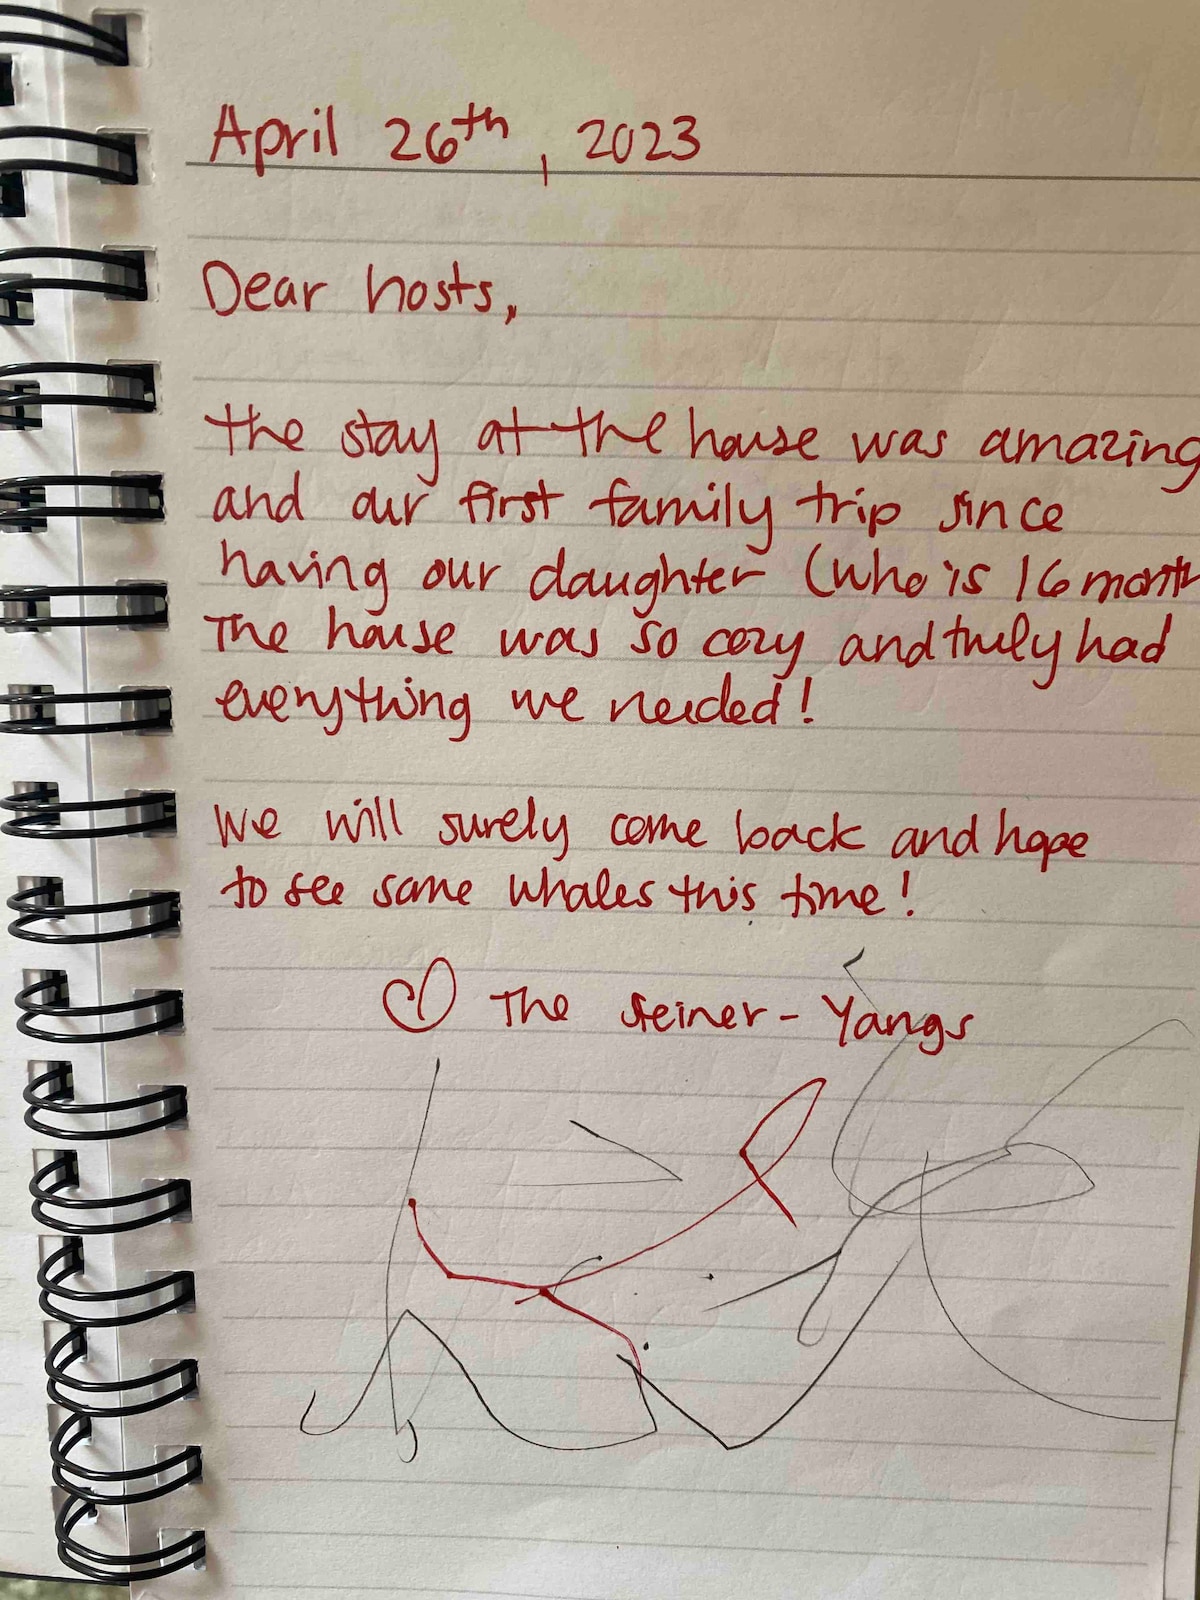 April 26th, 2023
Dear hosts,
The stay at the house was amazing
and our first family trip since
having our daughter (who is 16 month
The house was so cozy and truly had
everything we needed!
We will surely come back and hope
to see some whales this time!
The Steiner-Yangs